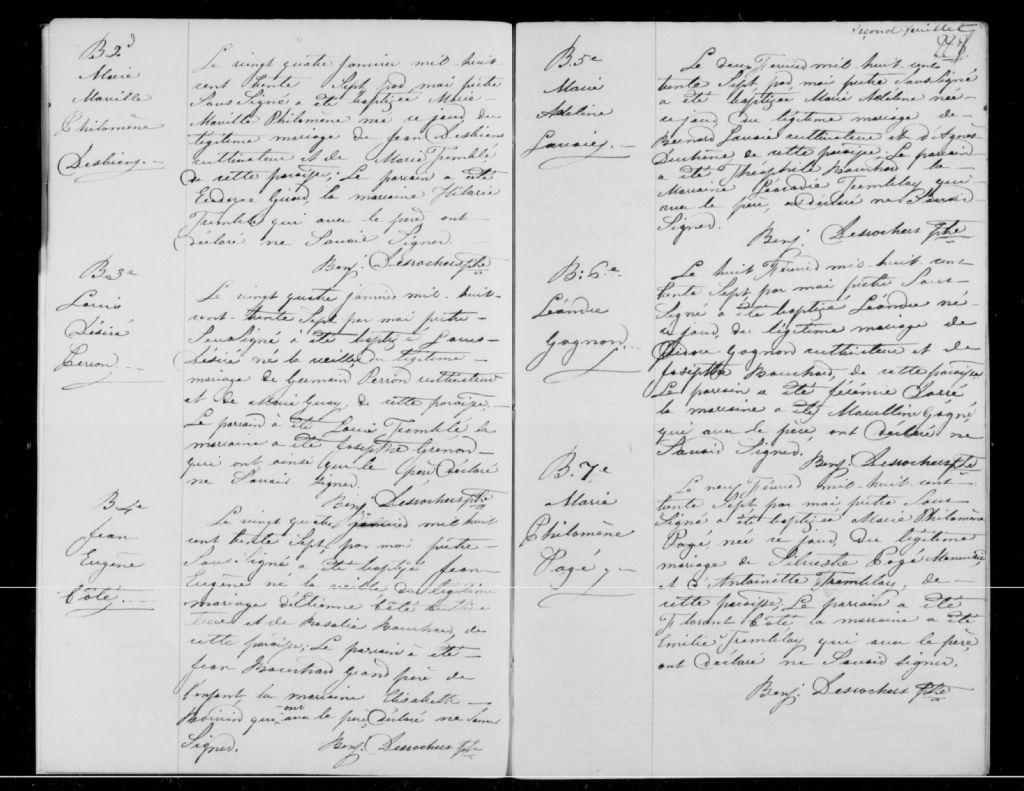 B.2d
Marie
Maville
Philomène
Desbiens.
Le vingt quatre janvier mil-huit
cent trente Sept, par moi prêtre
Sous Signé a été baptisée Marie-
Maville Philomène née ce jour du
légitime mariage de Jean Desbiens
cultivateur et de Marie Tremblé
de cette paroisse; Le parrain a été
Girard, la marraine Hilarie
Tremblé qui avec le père ont
déclaré ne Savoir Signer.
Benj. Desrochers ptre
B.3e
Louis
Désiré
Perron.
Le vingt quatre janvier mil-huit-
cent-trente Sept par moi prêtre-
Sous Signé a été baptisé Louis-
Désiré né la veille, du légitime
mariage de Germain Perron cultivateur
et de Marie Guay, de cette paroisse,
Le parrain a été Louis Tremblé la
marraine a été Josepthe Grenon
qui ont ainsi que le père déclaré
ne Savoir Signer.
Benj. Desrochers ptre
B.4e
Jean
Eugène
Côté.
Le vingt quatre janvier mil huit
cent trente Sept, par moi prêtre-
Sous Signé a été baptisé Jean-
Eugène né la veille du légitime
mariage d'Etienne Côté cultiva-
teur et de Rosalie Bouchard, de
cette paroisse; Le parrain a été-
Jean Bouchard Grand père de
l'enfant, la marraine Elisabeth-
qui ont avec le père, déclaré ne Savoir
Signer. Benj. Desrochers ptre
Second feuillet
B.5e
Marie
Adeline
Lavoie,
Le deux Février mil-huit cent
trente Sept, par moi prêtre Sous Signé
a été baptisée Marie Adeline née-
ce jour du légitime mariage de-
Bernard Lavoie cultivateur et d'Agnes
Duchène de cette paroisse; Le parrain
a été Théophile Bouchard la-
Marraine Léocadie Tremblay qui
avec le père, ont déclaré ne Savoir
Signer.
Benj. Desrochers ptre
B:6e
Léandre
Gagnon.
Le huit Février mil-huit cent
trente Sept, par moi prêtre Sous-
Signé a été baptisé Léandre né-
ce jour, du légitime mariage de
Isidore Gagnon cultivateur et de
Josepthe Bouchard, de cette paroisse
Le parrain a été Jérémie
la marraine a été Marcelline Gagné
qui avec le père, ont déclaré ne
Savoir Signer.
Benj. Desrochers ptre
B.7e
Marie
Philomène
Pagé
Le neuf Février mil-huit-cent-
trente Sept, par moi prêtre-Sous-
Signé a été baptisée Marie Philomène
Pagé, née ce jour, du légitime
mariage de Silvestre Pagé Menuisier
et d'Antoinette Tremblay, de-
cette paroisse, Le parrain a été
Florent Côté la marraine a été
Emilie Tremblay qui avec le père,
ont déclaré ne Savoir signer.
Benj. Desrochers ptre